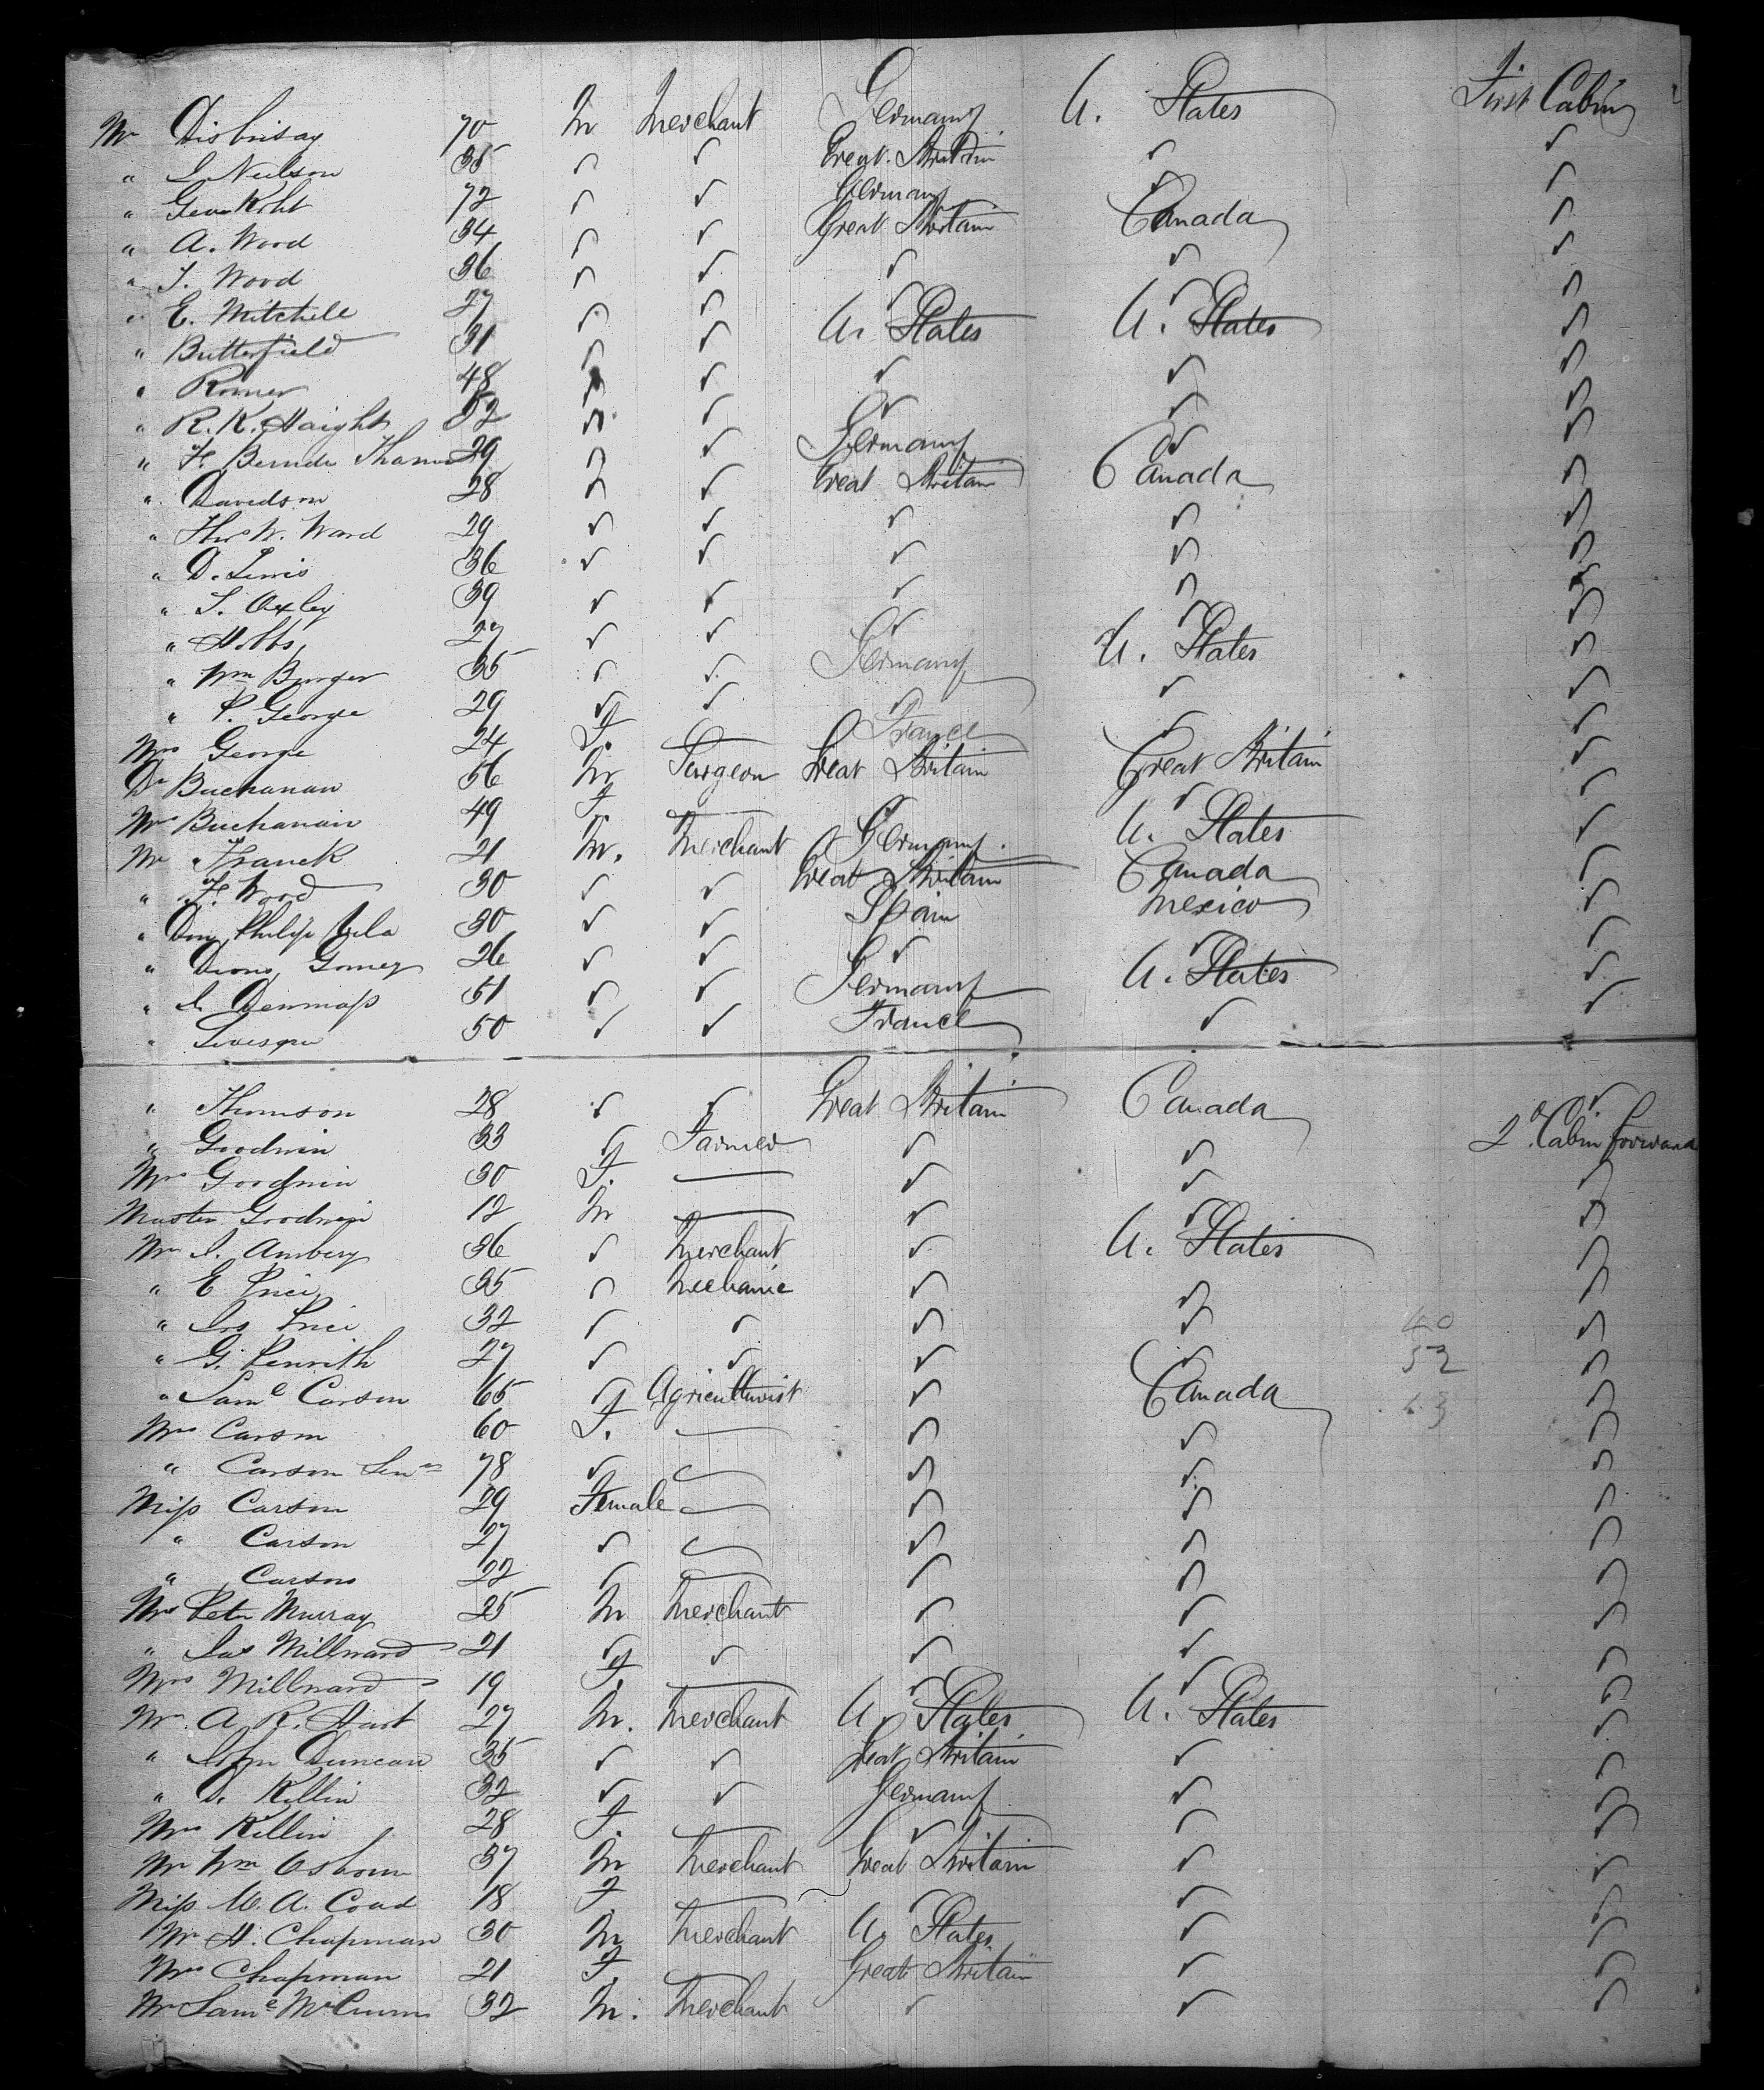 Mr Disbrisay 70 M Merchant Germany U. States First Cabin
" J. Neilson 35 ✓ ✓ Great Britain ✓ ✓
" Geo Koht 72 ✓ ✓ Germany ✓ ✓
" A. Wood 34 ✓ ✓ Great Britain Canada ✓
" T. Wood 36 ✓ ✓ ✓ ✓ ✓
" E. Mitchell 27 ✓ ✓ ✓ ✓ ✓
" Butterfield 31 ✓ ✓ U. States U. States ✓
" Romer 48 ✓ ✓ ✓ ✓ ✓
" R. K. Haight 52 ✓ ✓ ✓ ✓ ✓
" H. Bernde 29 ✓ ✓ Germany ✓ ✓
" Davidson 28 ✓ ✓ Great Britain Canada ✓
" Thos W. Ward 29 ✓ ✓ ✓ ✓ ✓
" D. Lewis 36 ✓ ✓ ✓ ✓ ✓
" T. Oxley 39 ✓ ✓ ✓ ✓ ✓
" Hobbs 27 ✓ ✓ ✓ ✓ ✓
" Wm Burger 35 ✓ ✓ Germany U. States ✓
" P. George 29 ✓ ✓ ✓ ✓ ✓
Mrs George 24 F. — France ✓ ✓
Dr Buchanan 56 M Surgeon Great Britain Great Britain ✓
Mrs Buchanan 49 F. — ✓ ✓ ✓
Mr Franck 21 M. Merchant Germany U. States ✓
" H. Wood 30 ✓ ✓ Great Britain Canada ✓
" Don Philip Vela 30 ✓ ✓ Spain Mexico ✓
" Gomez 26 ✓ ✓ ✓ ✓ ✓
" 51 ✓ ✓ Germany U. States ✓
" Levesque 50 ✓ ✓ France ✓ ✓
" Thomson 28 ✓ ✓ Great Britain Canada ✓
" Goodwin 33 ✓ Farmer ✓ ✓ 2d Cabin forward
Mrs Goodwin 30 F. — ✓ ✓ ✓
Master Goodwin 12 M — ✓ ✓ ✓
Mr J. Ambery 36 ✓ Merchant ✓ U. States ✓
" E Price 35 ✓ Mechanic ✓ ✓ ✓
" Jos Price 32 ✓ ✓ ✓ ✓ 40 ✓
" G. Penrith 27 ✓ ✓ ✓ ✓ 52 ✓
" Saml Carson 65 ✓ Agriculturist ✓ Canada ✓
Mrs Carson 60 F. — ✓ ✓ ✓
" Carson Senr 78 ✓ — ✓ ✓ ✓
Miss Carson 29 Female — ✓ ✓ ✓
" Carson 27 ✓ — ✓ ✓ ✓
" Carson 22 ✓ — ✓ ✓ ✓
Mr Peter Murray 25 M Merchant ✓ ✓ ✓
" Jas Millward 21 ✓ ✓ ✓ ✓ ✓
Mrs Millward 19 F. — ✓ ✓ ✓
Mr A. R. Hart 27 M. Merchant U. States U. States ✓
" John Duncan 35 ✓ ✓ Great Britain ✓ ✓
" D. Killin 32 ✓ ✓ Germany ✓ ✓
Mrs Killin 28 F. — ✓ ✓ ✓
Mr Wm Osborn 37 M Merchant Great Britain ✓ ✓
Miss M. A. Coad 18 F — ✓ ✓ ✓
Mr H. Chapman 30 M Merchant U. States ✓ ✓
Mrs Chapman 21 F. — Great Britain ✓ ✓
Mr Saml 32 M. Merchant ✓ ✓ ✓